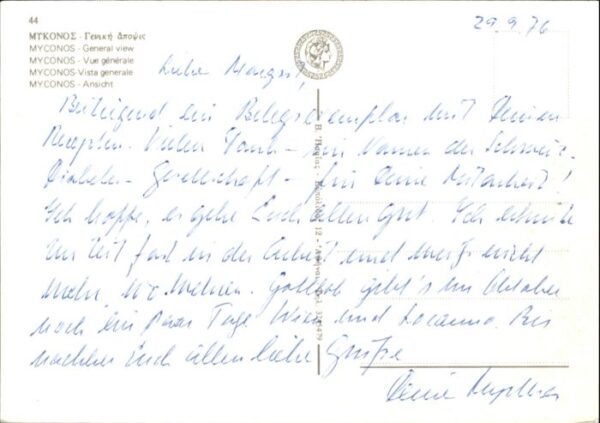 44
ΜΥΚΟΝΟΣ - Γενική ἄποψις
MYCONOS - General view
MYCONOS - Vue générale
MYCONOS - Vista generale
MYCONOS - Ansicht
29.9.76
Liebe Margrit!
Beiliegend ein Belegsexemplar mit Deinen
Rezepten. Vielen Dank - im Namen der Schweiz.
Diabetes-Gesellschaft - für Deine Mitarbeit!
Ich hoffe, es gehe Euch allen gut. Ich
zur Zeit fast in der Arbeit und weiss nicht
mehr, wo wehren. Gottlob gibt's im Oktober
noch ein paar Tage Wien und Locarno. Bis
nachher Euch allen liebe Grüsse
Deine